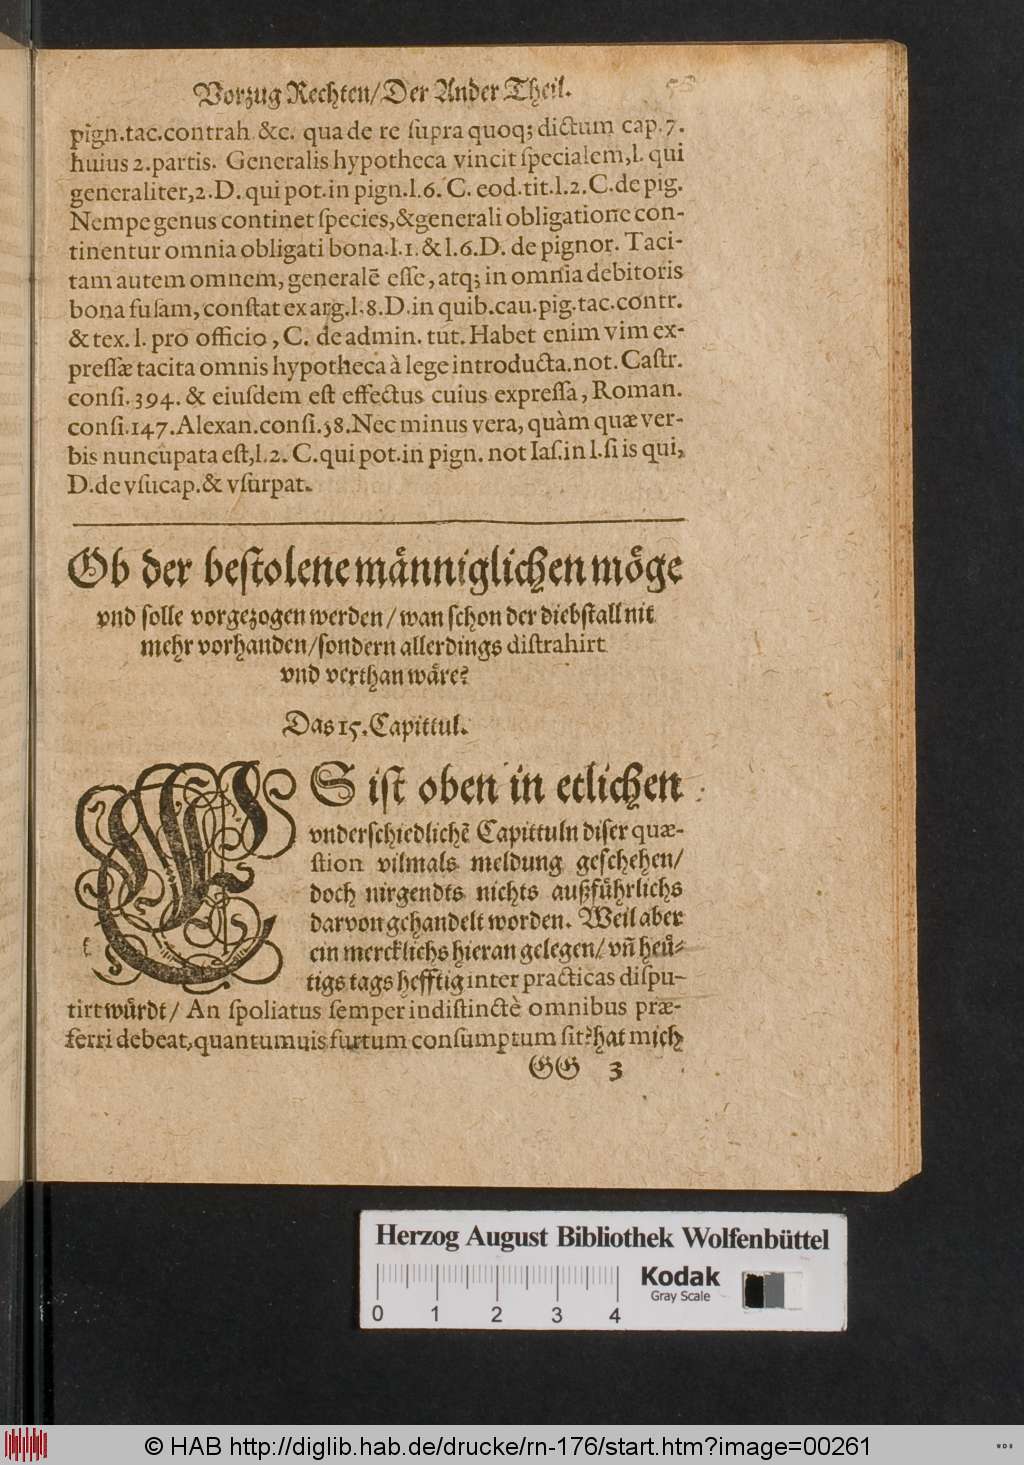 Vorzug Rechten/Der Ander Theil. 58
pign.tac.contrah &c. qua de re ſupra quoq; dictum cap.7.
huius 2.partis. Generalis hypotheca vincit ſpecialem,l. qui
generaliter,2.D. qui pot.in pign.l.6.C. eod.tit.l.2.C.de pig.
Nempe genus continet ſpecies,&generali obligatione con-
tinentur omnia obligati bona.l.1.&l.6.D. de pignor. Taci-
tam autem omnem, generalē eſſe, atq; in omnia debitoris
bona fuſam, conſtat ex arg.l.8.D.in quib.cau.pig.tac.contr.
& tex. l. pro officio, C. de admin. tut. Habet enim vim ex-
preſſæ tacita omnis hypotheca à lege introducta.not. Caſtr.
conſi.394. & eiuſdem eſt effectus cuius expreſſa, Roman.
conſi.147.Alexan.conſi.38.Nec minus vera, quàm quæ ver-
bis nuncupata eſt,l.2. C.qui pot.in pign. not Iaſ.in l.ſi is qui,
D.de vſucap.& vſurpat.
Ob der beſtolene maͤnniglichen moͤge
vnd ſolle vorgezogen werden/wan ſchon der diebſtall nit
mehr vorhanden/ſondern allerdings diſtrahirt
vnd verthan waͤre?
Das 15.Capittul.
ES iſt oben in etlichen
vnderſchiedlichē Capittuln diſer quæ-
ſtion vilmals meldung geſchehen/
doch nirgendts nichts außfuͤhrlichs
darvon gehandelt worden. Weil aber
ein mercklichs hieran gelegen/vñ heuͤ-
tigs tags hefftig inter practicas diſpu-
tirt wuͤrdt/ An ſpoliatus ſemper indiſtinctè omnibus præ-
ferri debeat,quantumuis furtum conſumptum ſit?hat mich
GG 3
Herzog August Bibliothek Wolfenbüttel
Kodak
Gray Scale
0 1 2 3 4
© HAB http://diglib.hab.de/drucke/rn-176/start.htm?image=00261